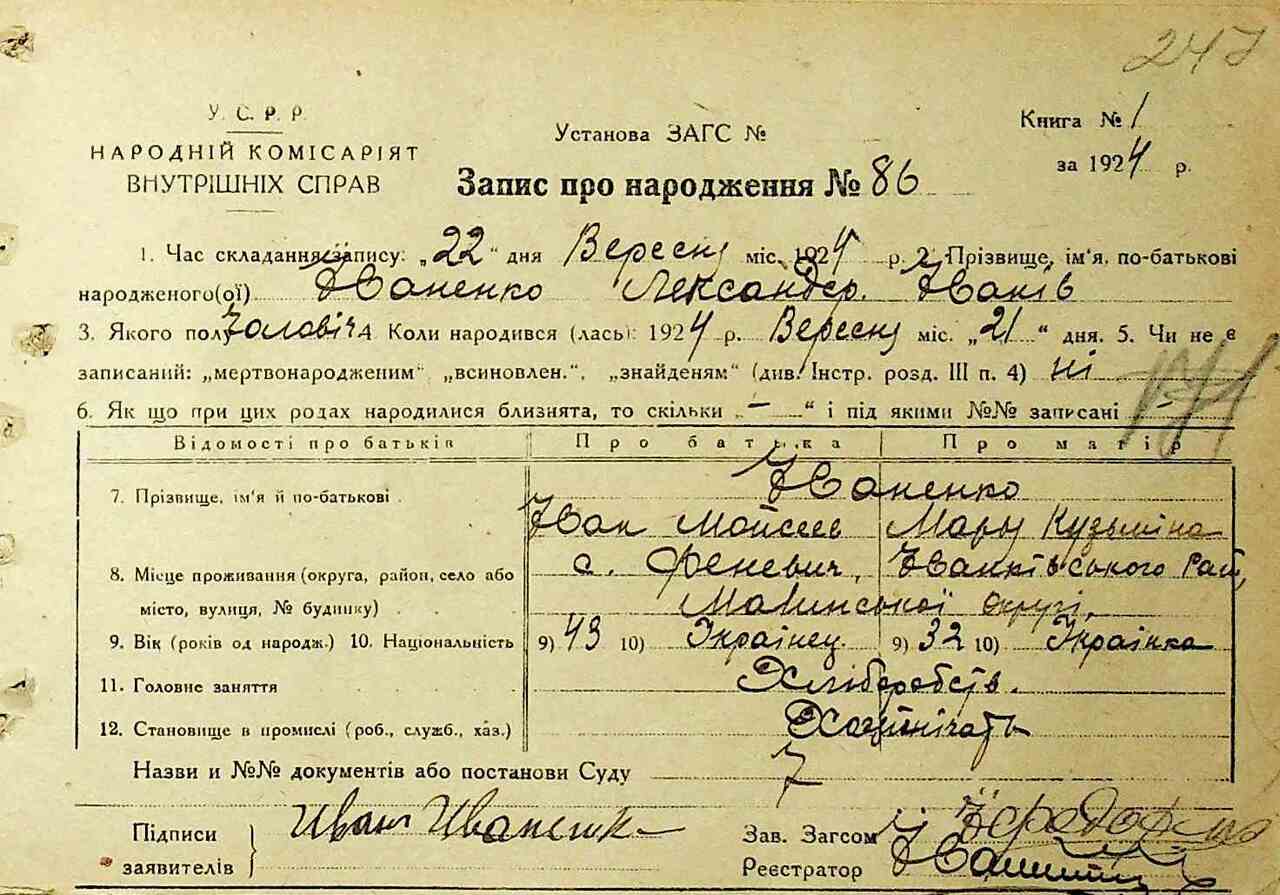 247
У. С. Р. Р.
НАРОДНІЙ КОМІСАРІЯТ
ВНУТРІШНІХ СПРАВ
Установа ЗАГС №
Книга № 1
за 1924 р.
Запис про народження № 86
1. Час складання запису: „22" дня Вересня міс. 1924 р. 2. Прізвище, ім'я, по-батькові
народженого(ої) Іваненко Лександер. Іванів
3. Якого полу чоловіч 4. Коли народився (лась): 1924 р. Вересня міс. „21" дня. 5. Чи не є
записаний: „мертвонародженим", „всиновлен.", „знайденям" (див. Інстр. розд. III п. 4) ні
6. Як що при цих родах народилися близнята, то скільки „-" і під якими №№ записані -
Відомості про батьків Про батька Про матір
7. Прізвище, ім'я й по-батькові Іваненко
Іван Мойсеев Марія Кузьміна
8. Місце проживання (округа, район, село або місто, вулиця, № будинку) с. Феневич, Іванківського Рай,
Малинської округі,
9. Вік (років од народж.) 10. Національність 9) 43 10) Українец. 9) 32 10) Українка
11. Головне заняття Хліборобств.
12. Становище в промислі (роб., служб., хаз.)
Назви и №№ документів або постанови Суду
Підписи заявителів Иван Иваненко
Зав. Загсом
Реєстратор